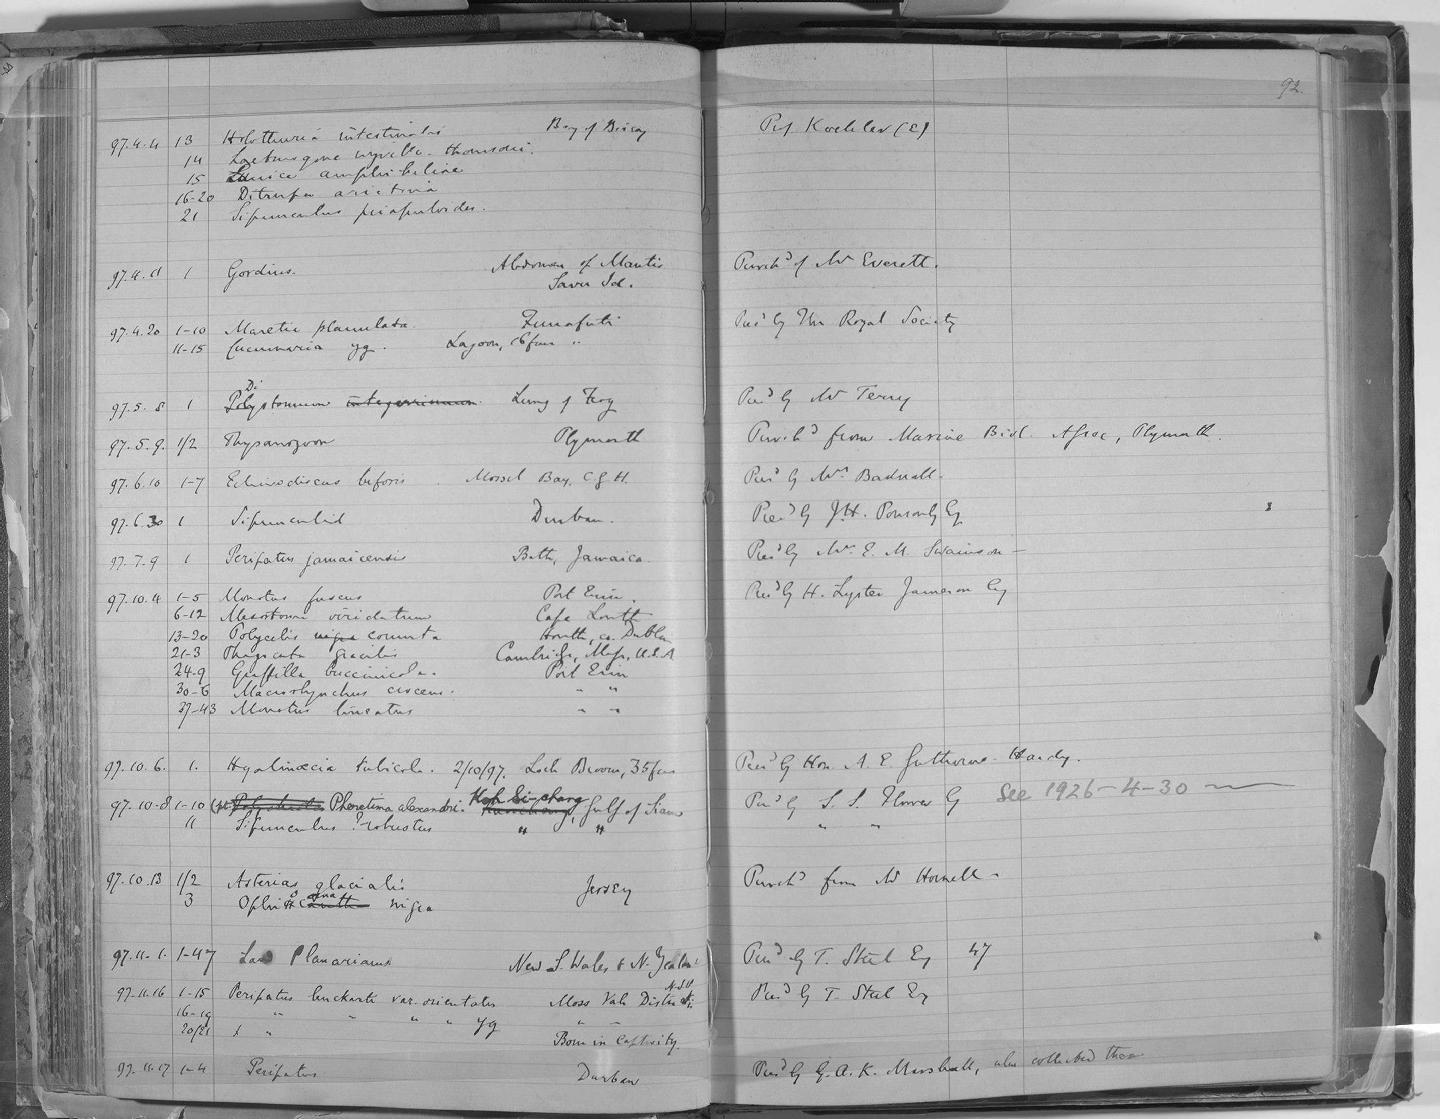 92.
97.4.4 13 Holothuria intestinalis Bay of Biscay Prof Koehler (E)
14 Laetmogone wyville-thomsoni.
15 Eunice amphiheliae
16-20 Ditrupa arietina
21 Sipunculus priapuloides.
97.4.11 1 Gordius. Abdomen of Mantis Purchd of Mr Everett.
Savu Isd.
97.4.20 1-10 Maretia planulata. Funafuti Presd by The Royal Society
11-15 Cucumaria yg. Lagoon, 16 fms "
Di
97.5.8 1 Polystomum integerrimum. Lung of Frog Presd by Mr Terry
97.5.9. 1/2 Thysanozoon Plymouth Purchd from Marine Biol. Assoc, Plymouth.
97.6.10 1-7 Echinodiscus biforis Mossel Bay, C.G.H. Presd by Mrs Badnall.
97.6.30 1 Sipunculid Durban. Presd by J.H. Ponsonby Esq
97.7.9 1 Peripatus jamaicensis Bath, Jamaica. Presd by Mrs E. M. Swainson
97.10.4 1-5 Monotus fuscus Port Erin. Presd by H. Lyster Jameson Esq
6-12 Mesostoma viridatum
13-20 Polycelis nigra cornuta Howth, co. Dublin
21-3 Phagocata gracilis Cambridge, Mass, U.S.A
24-9 Graffilla buccinicola. Port Erin
30-6 Macrorhynchus croceus. " "
37-43 Monotus lineatus " "
97.10.6. 1. Hyalinoecia tubicola. 2/10/97. Loch Broom, 35 fms Presd by Hon. A. E. Gathorne-Hardy.
97.10.8 1-10 Pheretima alexandri. Koh Si-chang, Gulf of Siam Presd by S. S. Flower Esq See 1926-4-30
11 Sipunculus ?robustus " " " "
97.10.13 1/2 Asterias glacialis Jersey Purchd from Mr Hornell
3 Ophiocoma nigra
97.11.1. 1-47 Land Planarians New S. Wales & N. Zealand Presd by T. Steel Esq 47
N.S.W.
97.11.16 1-15 Peripatus leuckarti var. orientalis Moss Vale District Presd by T. Steel Esq
16-19 " " " " yg " "
20/21 " Born in Captivity.
97.11.17 1-4 Peripatus Durban Presd by G. A. K. Marshall, who collected them